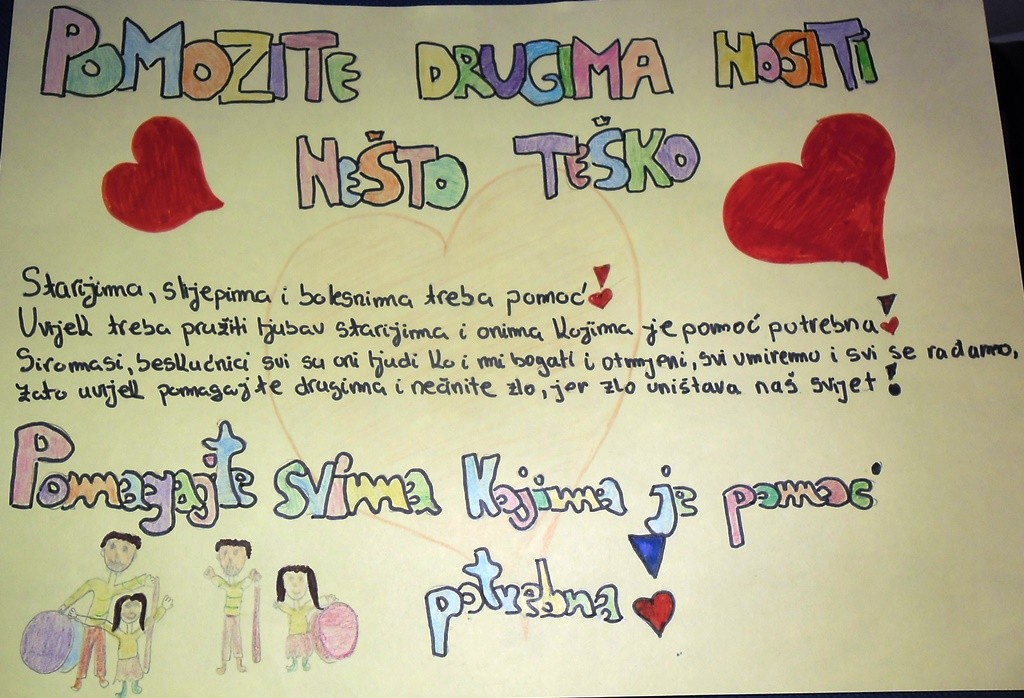 POMOZITE DRUGIMA NOSITI
NEŠTO TEŠKO
Starijima, slijepima i bolesnima treba pomoć!
Uvijek treba pružiti ljubav starijima i onima kojima je pomoć potrebna!
Siromasi, beskućnici svi su oni ljudi ko i mi bogati i otmjeni, svi umiremo i svi se rađamo,
zato uvijek pomagajte drugima i nečinite zlo, jer zlo uništava naš svijet!
Pomagajte svima kojima je pomoć
potrebna!